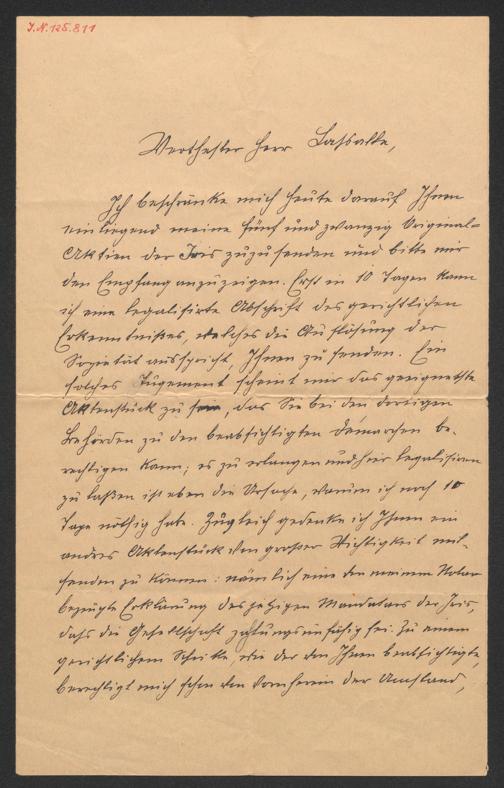 J.N. 125.811
Werthester Herr Lassalle,
Ich beschränke mich heute darauf Ihnen
einliegend meine fünf und zwanzig Original-
Aktien der Iris zuzusenden und bitte mir
den Empfang anzuzeigen. Erst in 10 Tagen kann
ich eine legalisirte Abschrift des gerichtlichen
Erkenntnißes, welches die Auflösung der
Sozietät ausspricht, Ihnen zu senden. Ein
solches Jugement scheint mir das geeignetste
Aktenstück zu sein, das Sie bei den dortigen
Behörden zu den beabsichtigten démarchen be-
rechtigen kann; es zu erlangen und hier legalisiren
zu laßen ist eben die Ursache, warum ich noch 10
Tage nöthig habe. Zugleich gedenke ich Ihnen ein
andres Aktenstück von großer Wichtigkeit mit-
senden zu können: nämlich eine von meinem Notar
bezeugte Erklärung des jetzigen Mandatars der Iris,
daß die Gesellschaft zahlungsunfähig sei. Zu einem
gerichtlichen Schritte, wie der von Ihnen beabsichtigte,
berechtigt mich schon von vornherein der Umstand,